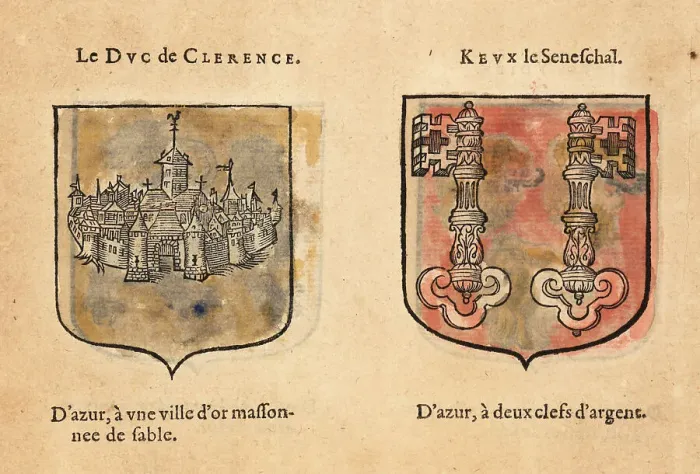 Le DVC de CLERENCE.
D'azur, à vne ville d'or maſſon-
nee de ſable.
KEVX le Seneſchal.
D'azur, à deux clefs d'argent.